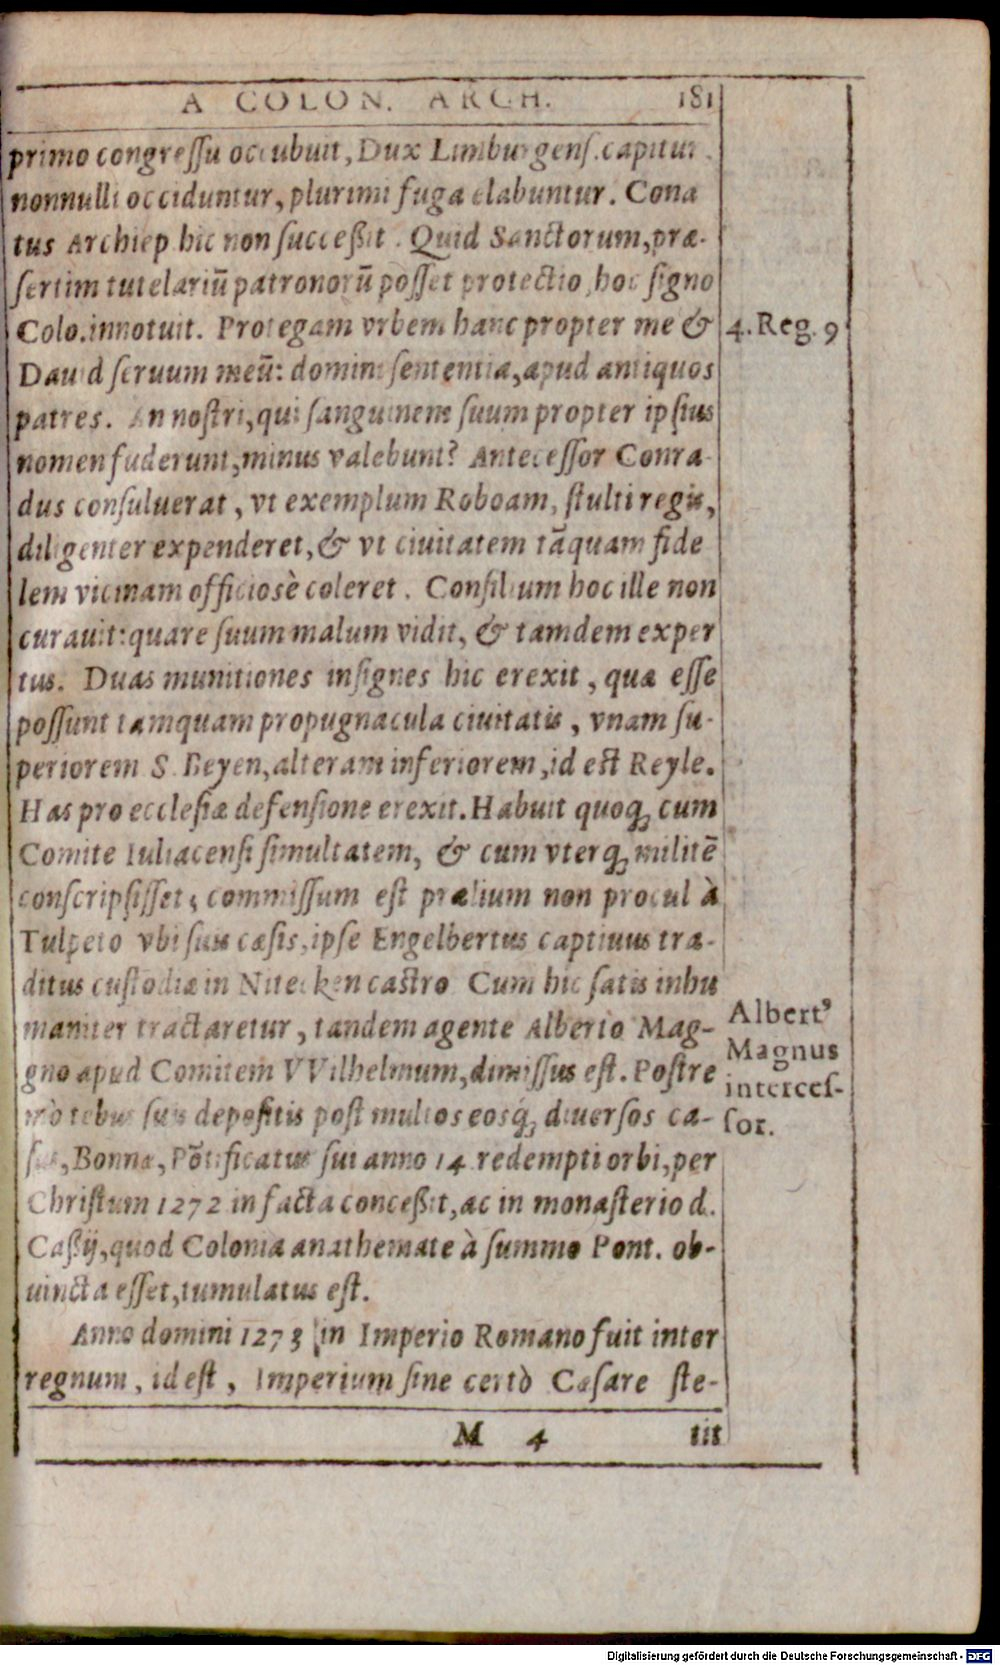 A COLON. ARCH. 181
primo congreſſu occubuit, Dux Limburgenſ. capitur,
nonnulli occiduntur, plurimi fuga elabuntur. Cona
tus Archiep. hic non ſucceßit. Quid Sanctorum, præ-
ſertim tutelariū patronorū poſſet protectio, hoc ſigno
Colo. innotuit. Protegam vrbem hanc propter me &
4. Reg. 9
Dauid ſeruum meū: domini ſententia, apud antiquos
patres. An noſtri, qui ſanguinem ſuum propter ipſius
nomen fuderunt, minus valebunt? Anteceſſor Conra-
dus conſuluerat, vt exemplum Roboam, ſtulti regis,
diligenter expenderet, & vt ciuitatem tāquam fide
lem vicinam officiosè coleret. Conſilium hoc ille non
curauit: quare ſuum malum vidit, & tamdem exper
tus. Duas munitiones inſignes hic erexit, quæ eſſe
poſſunt tamquam propugnacula ciuitatis, vnam ſu-
periorem S. Beyen, alteram inferiorem, id eſt Reyle.
Has pro eccleſiæ defenſione erexit. Habuit quoq; cum
Comite Iuliacenſi ſimultatem, & cum vterq; militē
conſcripſiſſet, commiſſum eſt prælium non procul à
Tulpeto vbi ſuis cæſis, ipſe Engelbertus captiuus tra-
ditus cuſtodiæ in Nitecken caſtro. Cum hic ſatis inhu
maniter tractaretur, tandem agente Alberto Mag-
gno apud Comitem VVilhelmum, dimiſſus eſt. Poſtre
Albert⁹
Magnus
interceſ-
ſor.
mò rebus ſuis depoſitis poſt multos eosq́; diuerſos ca-
ſus, Bonnæ, Pōtificatus ſui anno 14. redempti orbi, per
Chriſtum 1272 in facta conceßit, ac in monaſterio d.
Caßij, quod Colonia anathemate à ſummo Pont. ob-
uincta eſſet, tumulatus eſt.
Anno domini 1273 in Imperio Romano fuit inter
regnum, id eſt, Imperium ſine certò Cæſare ſte-
M 4 tit
Digitalisierung gefördert durch die Deutsche Forschungsgemeinschaft - DFG